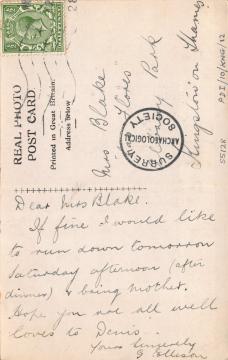 REAL PHOTO
POST CARD
Printed in Great Britain
Address Below
Mrs Blake
Park
Kingston on Thames
SURREY ARCHAEOLOGICAL SOCIETY
PDI/10/KNG/12
Dear Mrs Blake.
If fine I would like
to run down tomorrow
Saturday afternoon (after
dinner) & bring mother.
Hope you are all well
loves to Denis.
Yours Sincerely
G Ellison